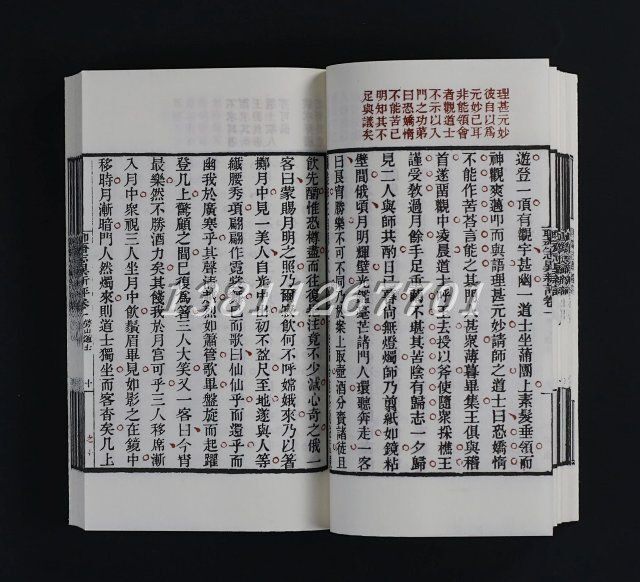 理甚元妙
彼自以爲
元妙已耳
非能領會
者觀道士
不示以入
門之功第
曰恐嬌惰
不能苦已
明知其不
足與議矣
遊登一頂有觀宇甚幽一道士坐蒲團上素髮垂領而
神觀爽邁叩而與語理甚元妙請師之道士曰恐嬌惰
不能作苦荅言能之其門人甚眾薄暮畢集王俱與稽
首遂留觀中凌晨道士呼王去授以斧使隨眾採樵王
謹受教過月餘手足重繭不堪其苦陰有歸志一夕歸
見二人與師共酌日已暮尚無燈燭師乃剪紙如鏡粘
壁間俄頃月明輝壁光鑑毫芒諸門人環聽奔走一客
曰良宵勝樂不可不同乃於案上取壺酒分賚諸徒且
飲先釂惟恐樽盡而往復挹注竟不少減心奇之俄一
客曰蒙賜月明之照乃爾寂飲何不呼嫦娥來乃以箸
擲月中見一美人自光中出初不盈尺至地遂與人等
纖腰秀項翩翩作霓裳舞已而歌曰仙仙乎而還乎而
幽我於廣寒乎其聲清越烈如簫管歌畢盤旋而起躍
登几上驚顧之間已復爲箸三人大笑又一客曰今宵
最樂然不勝酒力矣其餞我於月宮可乎三人移席漸
入月中眾視三人坐月中飲鬚眉畢見如影之在鏡中
移時月漸暗門人然燭來則道士獨坐而客杳矣几上
勞山道士
十
13811267701